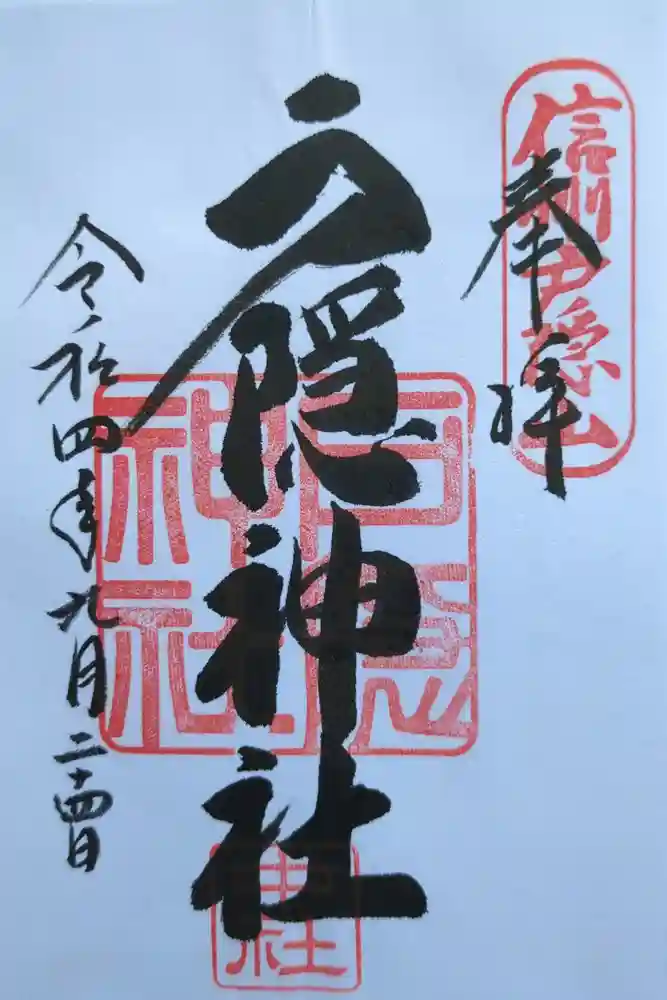 奉拝
信州戸隠山
戸隠神社
戸隠神社
中社
令和四年九月二十四日